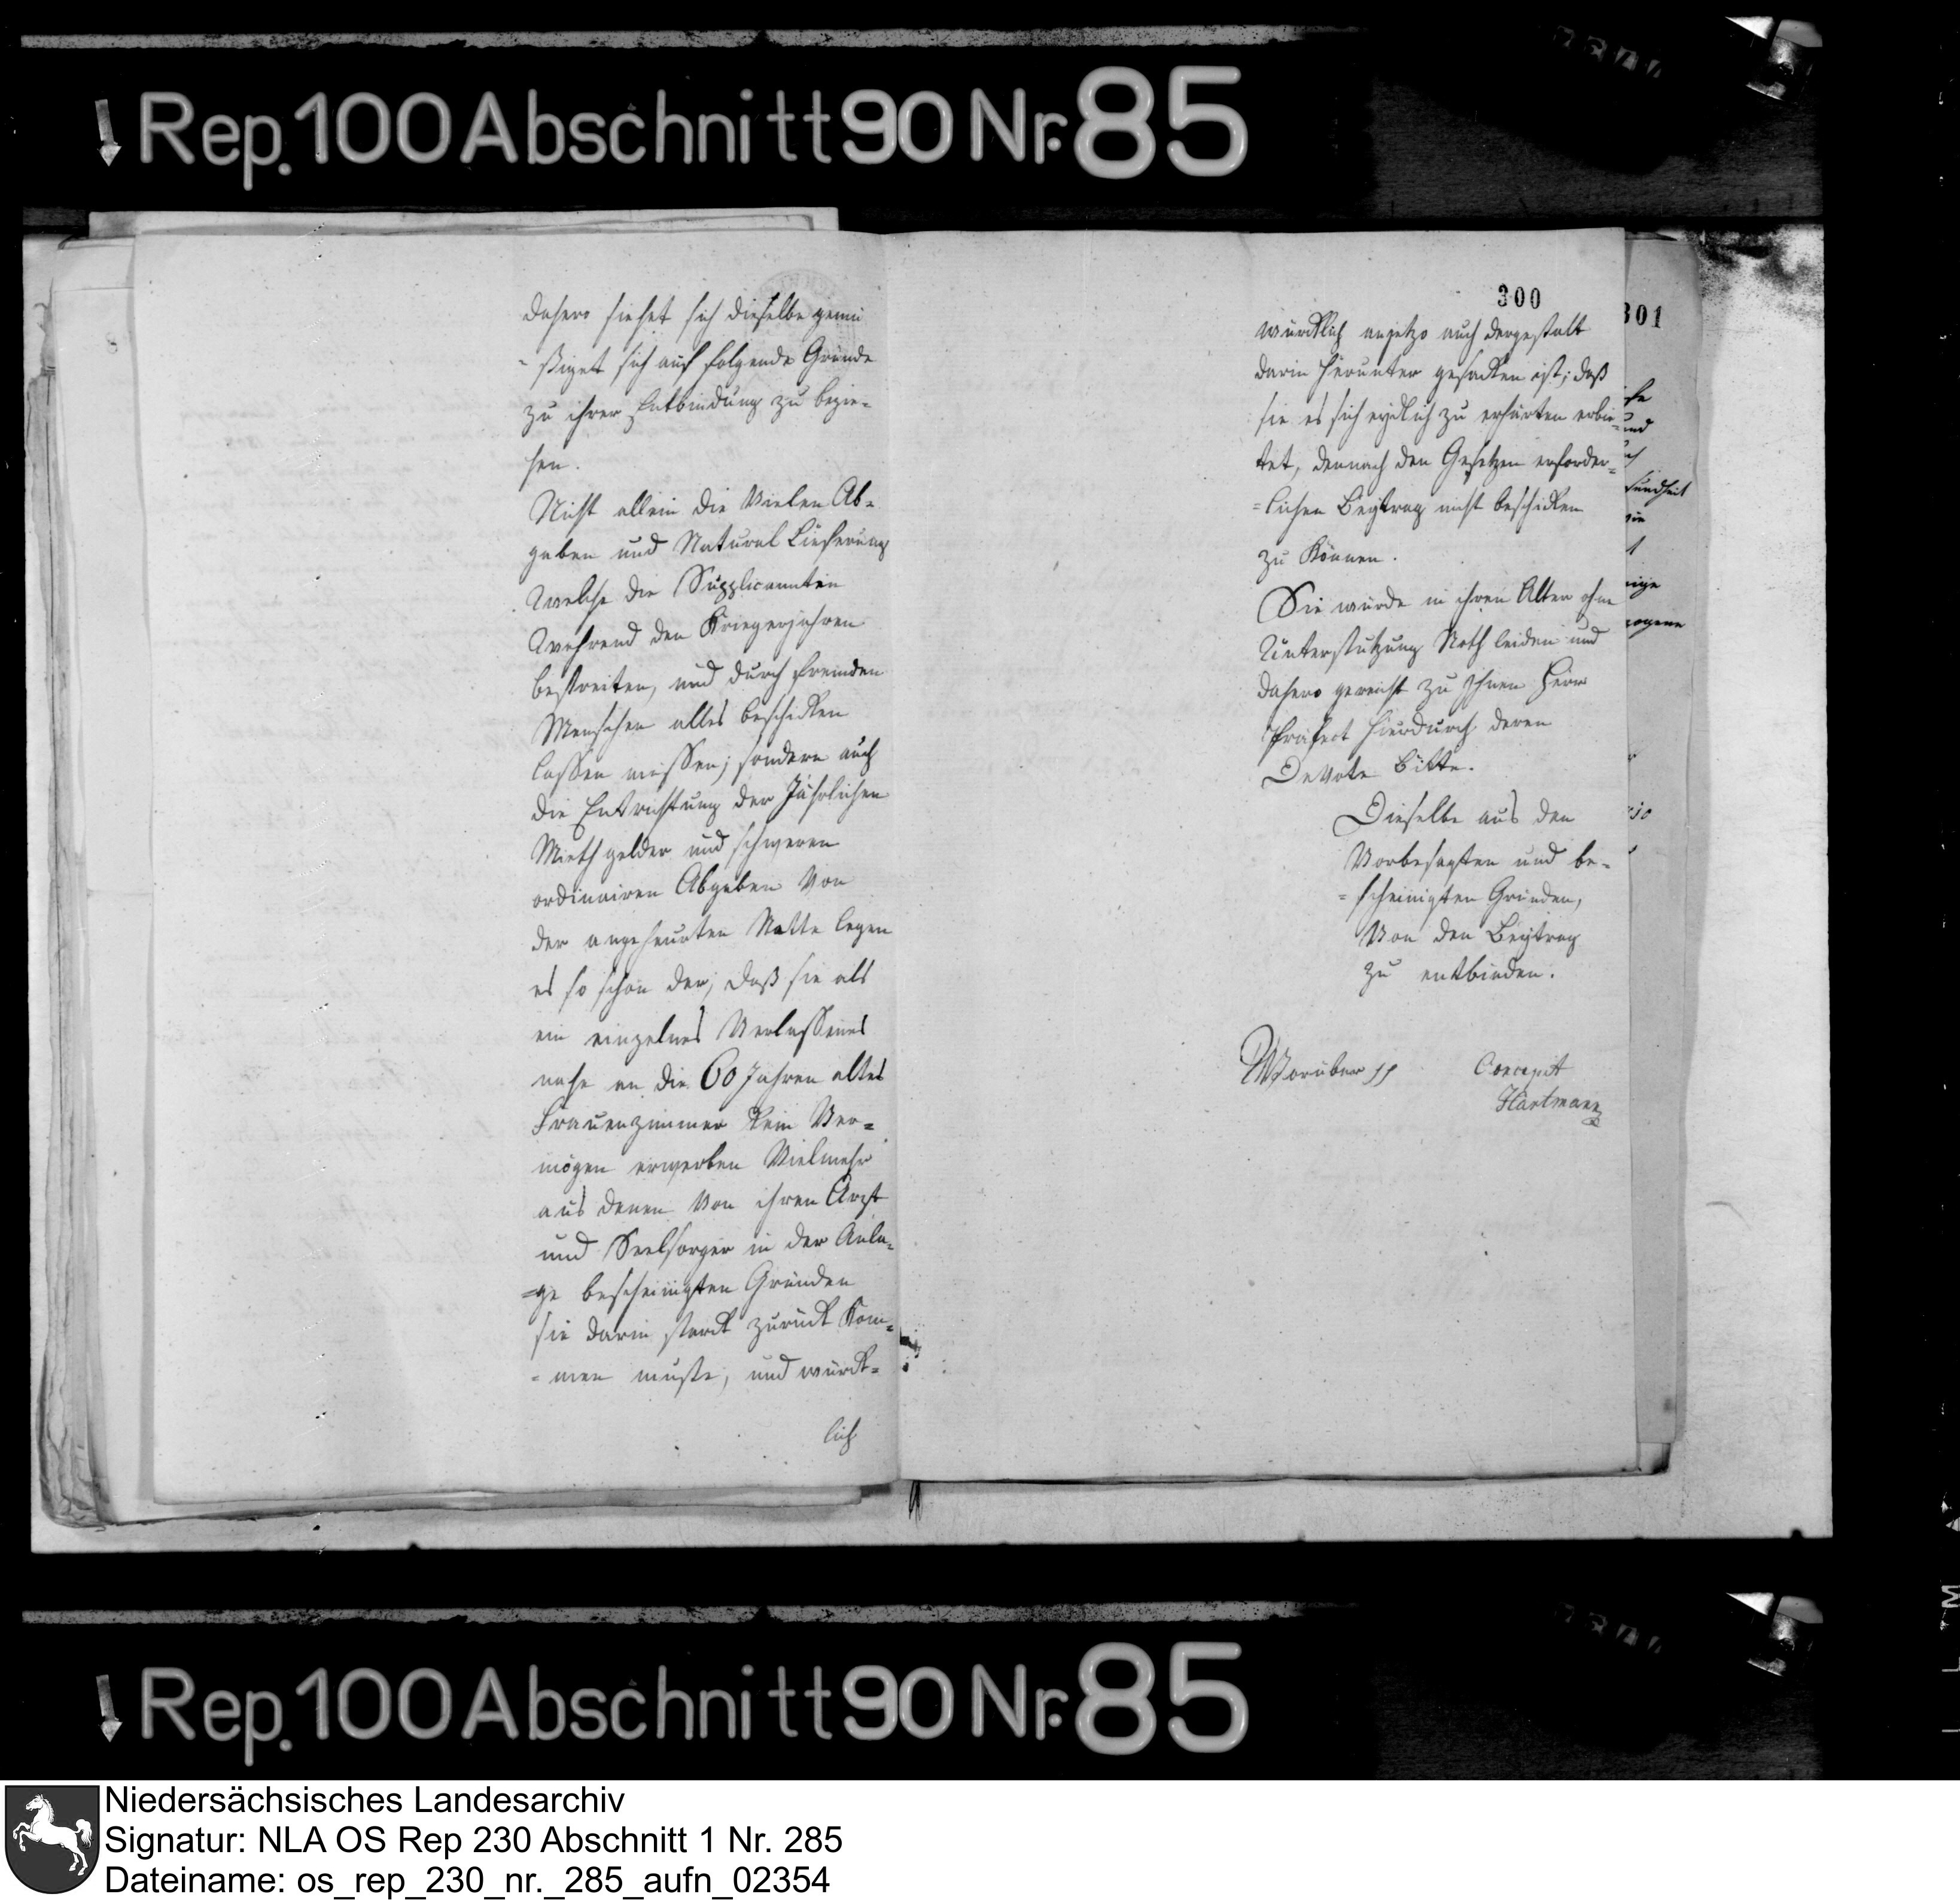 Rep. 100 Abschnitt 90 Nr. 85
dahero siehet sich dieselbe gemü
-ßiget sich auf folgende Gründe
zu ihrer Entbindung zu bezie-
hen.
Nicht allein die Vielen Ab-
gaben und Natural Lieferung
welche die Supplicanntin
während den Kriegerjahren
bestreiten, und durch fremden
Menschen alles beschicken
lassen müssen; sondern auch
die Entrichtung der Jährlichen
Mieth gelder und schweren
ordinairen Abgaben Von
der angeheurten Stette legen
es so schon dar, daß sie als
ein einzelnes Verlassenes
nahe an die 60 Jahren altes
Frauenzimmer kein Ver=
mögen erwerben Vielmehr
aus denen Von ihren Arzt
und Seelsorger in der Anla-
=ge bescheinigten Gründen
sie darin starck zurück kom=
=men muste, und würck=
lich
300
würcklich anjetzo auch dergestalt
darin herunter gesacken ist, daß
sie es sich eydlich zu erhärten erbie=
tet, dennach den Gesetzen erforder=
=lichen Beytrag nicht beschicken
zu können.
Sie würde in ihren Alter ohne
Unterstützung Noth leiden und
dahero gereicht zu Ihnen Herr
Präfect hierdurch deren
Devote Bitte.
Dieselbe aus den
Vorbesagten und be=
=scheinigten Gründen,
Von den Beytrag
zu entbinden.
Worüber pp
Concepit
Hartmann
301
und
sundheit
nige
zogene
Rep. 100 Abschnitt 90 Nr. 85
Niedersächsisches Landesarchiv
Signatur: NLA OS Rep 230 Abschnitt 1 Nr. 285
Dateiname: os_rep_230_nr._285_aufn_02354